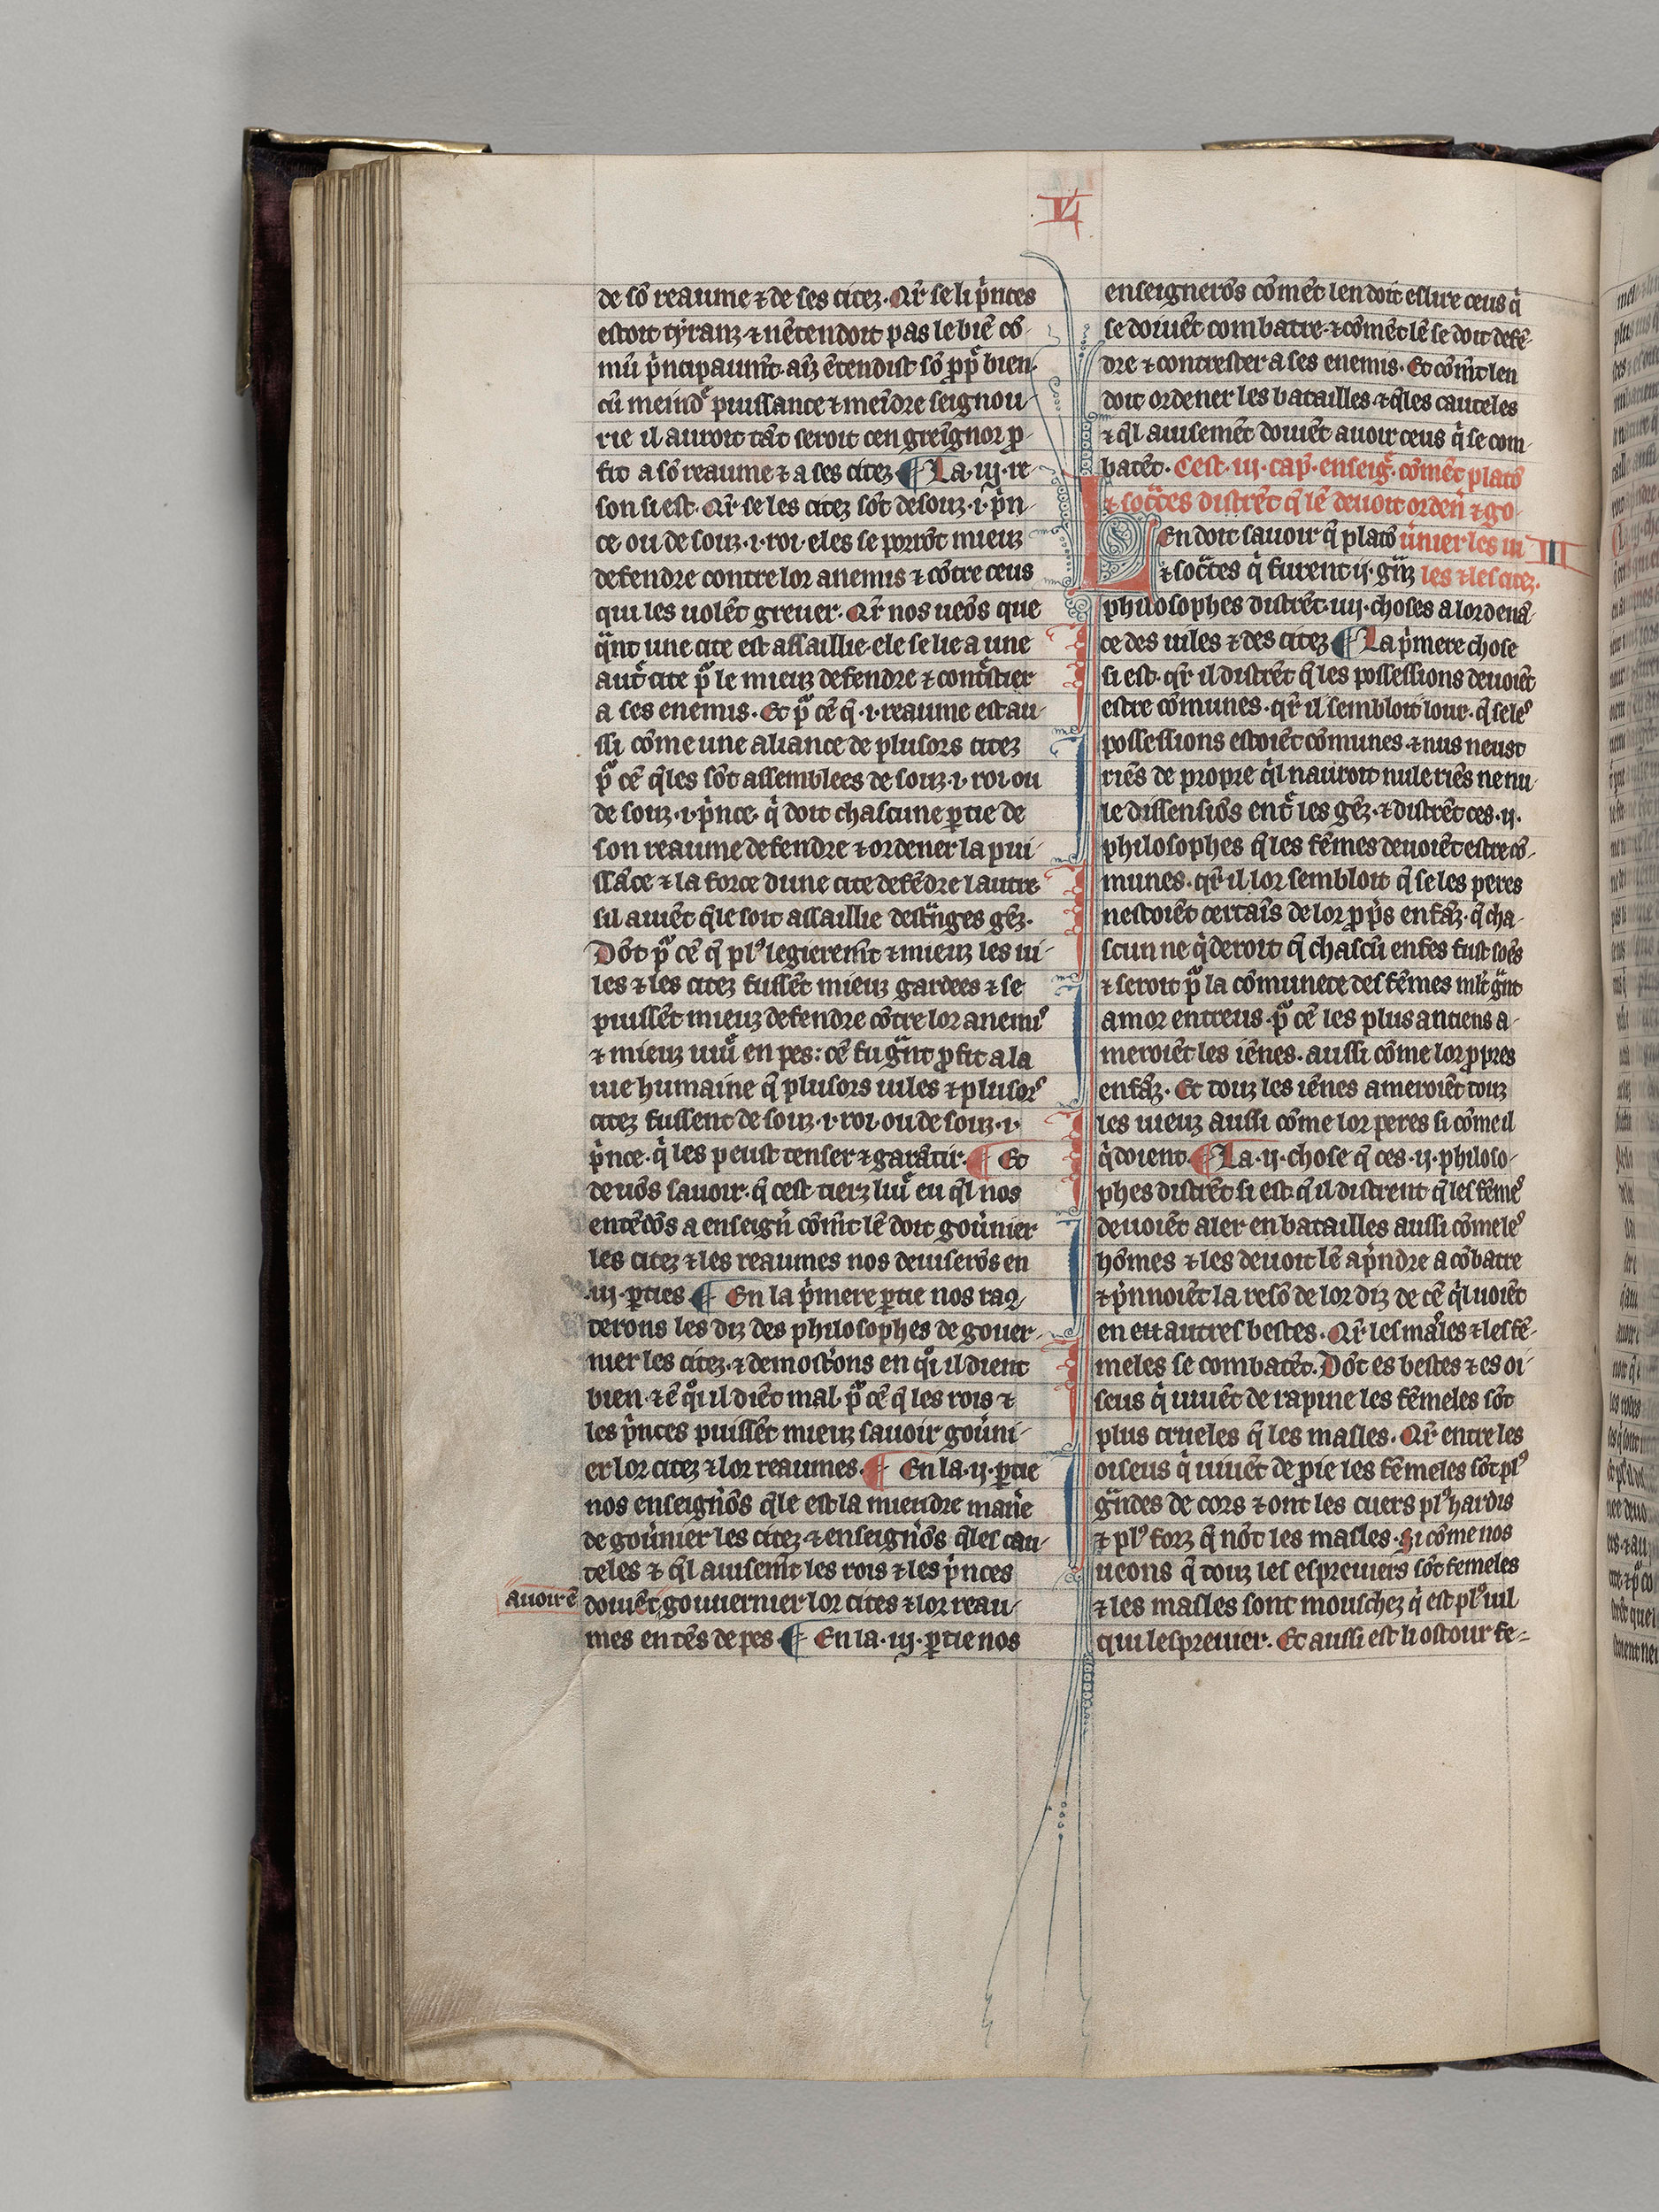 L̃I
de sõ reaume ⁊ de ses citez. Qr̃ se li p̾nces
estoit tyranz ⁊ nẽtendoit pas le biẽ cõ-
mũ p̾ncipaum̃t. aĩz ẽtendist sõ pp̃ bien.
cũ meindᵉ puissance ⁊ meĩdre seignou-
rie il auroit tãt seroit cen greĩgnor ꝓ-
fit a sõ reaume ⁊ a ses citez ¶ La .iij. re-
son si est. Qr̃ se les citez sõt desouz .i. p̾n-
ce ou de souz .i. roi eles se porrõt mieuz
defendre contre lor anemis ⁊ cõtre ceus
qui les uolẽt greuer. Qr̃ nos ueõs que
qᵃnt une cite est assaillie. ele se lie a une
autᵉ cite pͦ le mieuz defendre ⁊ contᵃstier
a ses enemis. Et pͦ cẽ q̃ .i. reaume est au-
ssi cõme une aliance de plusors citez
pͦ cẽ q̃les sõt assemblees de souz .i. roi ou
de souz .i. p̾nce. q̾ doit chascune ꝑtie de
son reaume defendre ⁊ ordener la pui-
ssãce ⁊ la force dune cite defẽdre lautre
sil auiẽt q̃le soit assaillie destᵃnges gẽz.
Dõt pͦ cẽ q̃ plꝰ legierem̃t ⁊ mieuz les ui-
les ⁊ les citez fussẽt mieuz gardees ⁊ se
puissẽt mieuz defendre cõtre lor anemiˢ
⁊ mieuz uiuᵉ en pes: cẽ fu gᵃnt ꝓfit a la
uie humaine q̃ plusors uiles ⁊ plusorˢ
citez fussent de souz .i. roi. ou de souz .i.
p̾nce. q̾ les peust tenser ⁊ garãtir. ¶ Et
deuõs sauoir. q̃ cest tierz liuᵉ eu q̃l nos
entẽdõs a enseign̾ cõm̃t lẽ doit gou̾nier
les citez ⁊ les reaumes nos deuiserõs en
.iij. ꝑties ¶ En la p̾mere ꝑtie nos raq̃-
terons les diz des philosophes de gouer-
nier les citez. ⁊ demostᵒns en qͦi il dient
bien. ⁊ ẽ qͦi il diẽt mal. pͦ cẽ q̃ les rois ⁊
les p̾nces puissẽt mieuz sauoir gou̾ni-
er lor citez ⁊ lor reaumes. ¶ En la .ij. ꝑtie
nos enseign̾õs q̃le est la miendre mani̾e
de gou̾nier les citez ⁊ enseign̾õs q̃les cau-
teles ⁊ q̃l auisem̃t les rois ⁊ les p̾nces
auoir ẽ
doiuẽt gouuernier lor cites ⁊ lor reau-
mes en tẽs de pes ¶ En la .iij. ꝑtie nos
enseignerõs cõmẽt len doit eslire ceus q̾
se doiuẽt combatre. ⁊ cõmẽt lẽ se doit defẽ-
dre ⁊ contrester a ses enemis. Et cõm̃t len
doit ordener les batailles ⁊ q̃les cauteles
⁊ q̃l auisemẽt doiuẽt auoir ceus q̾ se com-
batẽt. Cest .iij. cap̃. enseig̃. cõmẽt platõ
⁊ socᵃtes distrẽt q̃ lẽ deuoit orden̾ ⁊ go-
LEn doit sauoir q̃ platõ u̾nier les ui
III
⁊ socᵃtes q̾ furent .ij. gᵃnz les ⁊ les citez.
philosophes distrẽt .iiij. choses a lordenã-
ce des uiles ⁊ des citez ¶ La p̾mere chose
si est. qr̃ il distrẽt q̃ les possessions deuoiẽt
estre cõmunes. qr̃ il sembloit lour. q̃ se leˢ
possessions estoiẽt cõmunes ⁊ nus neust
riẽs de propre q̾l nauroit nule riẽs ne nu-
le dissensiõs entᵉ les gẽz. ⁊ distrẽt ces .ij.
philosophes q̃ les fẽmes deuoiẽt estre cõ-
munes. qr̃ il lor sembloit q̃ se les peres
nestoiẽt certaĩs de lor ꝓp̾s enfãz. q̃ cha-
scun ne q̾deroit q̃ chascũ enfes fust soẽs
⁊ seroit pͦ la cõmunete des fẽmes ml̃t gᵃnt
amor entreus. pͦ cẽ les plus antiens a-
meroiẽt les iẽnes. aussi cõme lor ꝓpres
enfãz. Et touz les iẽnes ameroiẽt touz
les uieuz aussi cõme lor peres si cõme il
q̾doient. ¶ La .ij. chose q̃ ces .ij. philoso-
phes distrẽt si est. q̃ il distrent q̃ les fẽmeˢ
deuoiẽt aler en batailles aussi cõme leˢ
hõmes ⁊ les deuoit lẽ ap̾ndre a cõbatre
⁊ p̾nnoiẽt la resõ de lor diz de cẽ q̾l uoiẽt
en eu autres bestes. Qr̃ les maˡles ⁊ les fe-
meles se combatẽt. Dõt es bestes ⁊ es oi-
seus q̾ uiuẽt de rapine les femeles sõt
plus crueles q̃ les masles. Qr̃ entre les
oiseus q̾ uiuẽt de pͥie les fẽmeles sõt plꝰ
gᵃndes de cors ⁊ ont les cuers plꝰ hardis
⁊ plꝰ forz q̃ nõt les masles. Si cõme nos
ueons q̃ touz les espreuiers sõt femeles
⁊ les masles sont mouschez q̾ est plꝰ uil
qui lespreuier. Et aussi est li ostour fe-